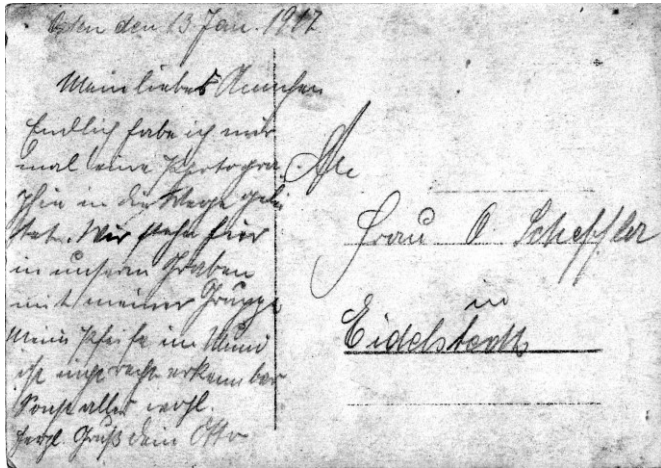 Osten den 13 Jan. 1917
Mein liebes Annchen
Endlich habe ich mir
mal eine Photogra
phie in die Wege gelei
tet. Wir stehn hier
in unsern Graben
mit meiner Gruppe
Meine Pfeife im Mund
ist nicht recht erkennbar
Sonst alles wohl.
Herzl. Gruß dein Otto
An
Frau O Scheffler
in
Eidelstedt